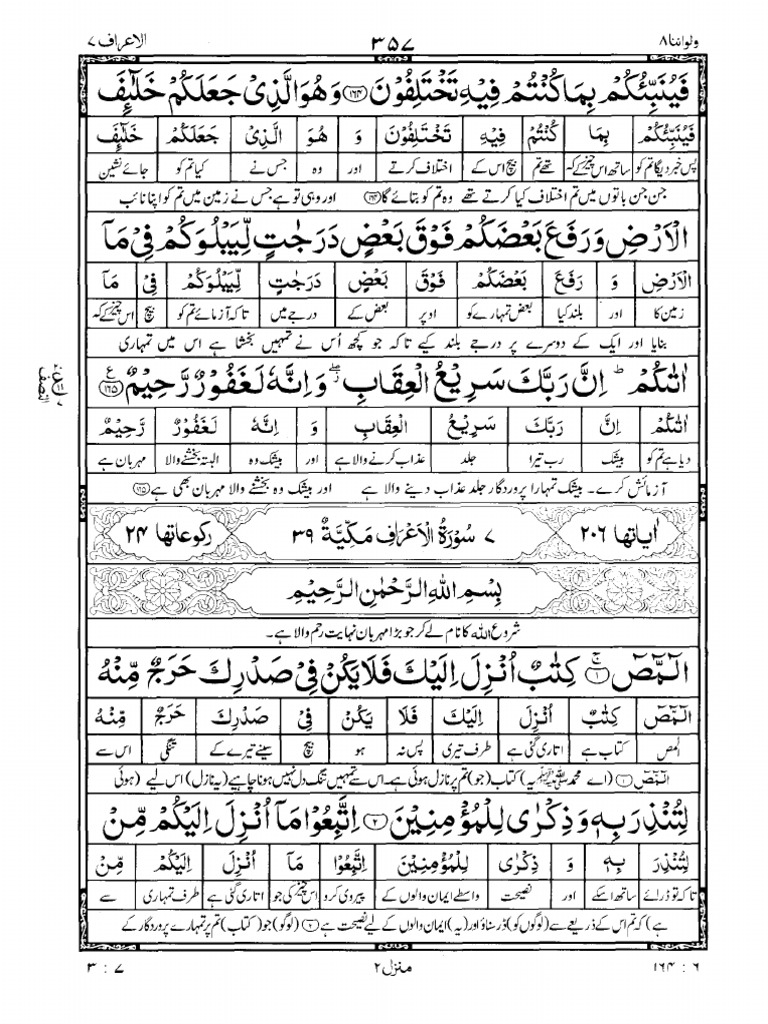 ولواننا ۸ ۳۵۷ الاعراف ۷
فَیُنَبِّئُکُمۡ بِمَا کُنۡتُمۡ فِیۡہِ تَخۡتَلِفُوۡنَ ﴿۱۶۴﴾ وَ ہُوَ الَّذِیۡ جَعَلَکُمۡ خَلٰٓئِفَ
فَیُنَبِّئُکُمۡ بِمَا کُنۡتُمۡ فِیۡہِ تَخۡتَلِفُوۡنَ وَ ہُوَ الَّذِیۡ جَعَلَکُمۡ خَلٰٓئِفَ
پس خبر دیگا تم کو ساتھ اس چیز کے کہ تھے تم بیچ اس کے اختلاف کرتے اور وہ جس نے کیا تم کو جائے نشین
جن جن باتوں میں تم اختلاف کیا کرتے تھے وہ تم کو بتائے گا ﴿۱۶۴﴾ اور وہی تو ہے جس نے زمین میں تم کو اپنا نائب
الۡاَرۡضِ وَ رَفَعَ بَعۡضَکُمۡ فَوۡقَ بَعۡضٍ دَرَجٰتٍ لِّیَبۡلُوَکُمۡ فِیۡ مَاۤ
الۡاَرۡضِ وَ رَفَعَ بَعۡضَکُمۡ فَوۡقَ بَعۡضٍ دَرَجٰتٍ لِّیَبۡلُوَکُمۡ فِیۡ مَاۤ
زمین کا اور بلند کیا بعض تمہارے کو اوپر بعض کے درجے میں تاکہ آزمائے تم کو بیچ اس چیز کے کہ
بنایا اور ایک کے دوسرے پر درجے بلند کیے تاکہ جو کچھ اُس نے تمہیں بخشا ہے اس میں تمہاری
اٰتٰىکُمۡ ؕ اِنَّ رَبَّکَ سَرِیۡعُ الۡعِقَابِ ۫ۖ وَ اِنَّہٗ لَغَفُوۡرٌ رَّحِیۡمٌ ﴿۱۶۵﴾ ع
النصف
اٰتٰىکُمۡ اِنَّ رَبَّکَ سَرِیۡعُ الۡعِقَابِ وَ اِنَّہٗ لَغَفُوۡرٌ رَّحِیۡمٌ
دیا ہے تم کو بیشک رب تیرا جلد عذاب کرنے والا ہے اور بیشک وہ البتہ بخشنے والا مہربان ہے
آزمائش کرے۔ بیشک تمہارا پروردگار جلد عذاب دینے والا ہے اور بیشک وہ بخشنے والا مہربان بھی ہے ﴿۱۶۵﴾
اٰیاتھا ۲۰۶ ۷ سُوۡرَۃُ الۡاَعۡرَافِ مَکِّیَّۃٌ ۳۹ رکوعاتھا ۲۴
بِسۡمِ اللہِ الرَّحۡمٰنِ الرَّحِیۡمِ
شروع اللہ کا نام لے کر جو بڑا مہربان نہایت رحم والا ہے۔
الٓـمّٓصٓ ﴿۱﴾ کِتٰبٌ اُنۡزِلَ اِلَیۡکَ فَلَا یَکُنۡ فِیۡ صَدۡرِکَ حَرَجٌ مِّنۡہُ
الٓـمّٓصٓ کِتٰبٌ اُنۡزِلَ اِلَیۡکَ فَلَا یَکُنۡ فِیۡ صَدۡرِکَ حَرَجٌ مِّنۡہُ
المص کتاب ہے اتاری گئی ہے طرف تیری پس نہ ہو بیچ سینے تیرے کے تنگی اس سے
الٓـمّٓصٓ ﴿۱﴾ (اے محمد ﷺ یہ) کتاب (جو) تم پر نازل ہوئی ہے۔ اس سے تمہیں تنگ دل نہیں ہونا چاہیے (یہ نازل) اس لیے (ہوئی
لِتُنۡذِرَ بِہٖ وَ ذِکۡرٰی لِلۡمُؤۡمِنِیۡنَ ﴿۲﴾ اِتَّبِعُوۡا مَاۤ اُنۡزِلَ اِلَیۡکُمۡ مِّنۡ
لِتُنۡذِرَ بِہٖ وَ ذِکۡرٰی لِلۡمُؤۡمِنِیۡنَ اِتَّبِعُوۡا مَاۤ اُنۡزِلَ اِلَیۡکُمۡ مِّنۡ
تاکہ تو ڈرائے ساتھ اسکے اور نصیحت واسطے ایمان والوں کے پیروی کرو اس چیز کی جو اتاری گئی ہے طرف تمہاری سے
ہے) کہ تم اس کے ذریعے سے (لوگوں کو) ڈر سناؤ اور (یہ) ایمان والوں کے لیے نصیحت ہے ﴿۲﴾ (لوگو) جو (کتاب) تم پر تمہارے پروردگار کے
۶ : ۱۶۴ منزل ۲ ۷ : ۳